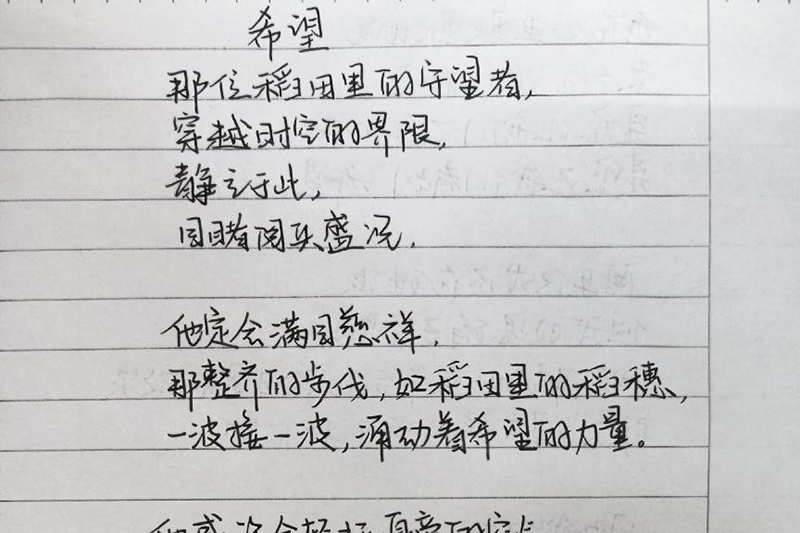 希望
那位稻田里的守望者，
穿越时空的界限，
静立于此，
目睹阅兵盛况．
他定会满目慈祥．
那整齐的步伐，如稻田里的稻穗，
一波接一波，涌动着希望的力量。